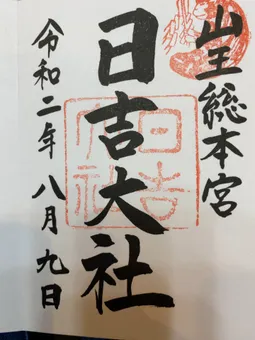 山王総本宮
日吉大社
令和二年 八月 九日
日吉大社